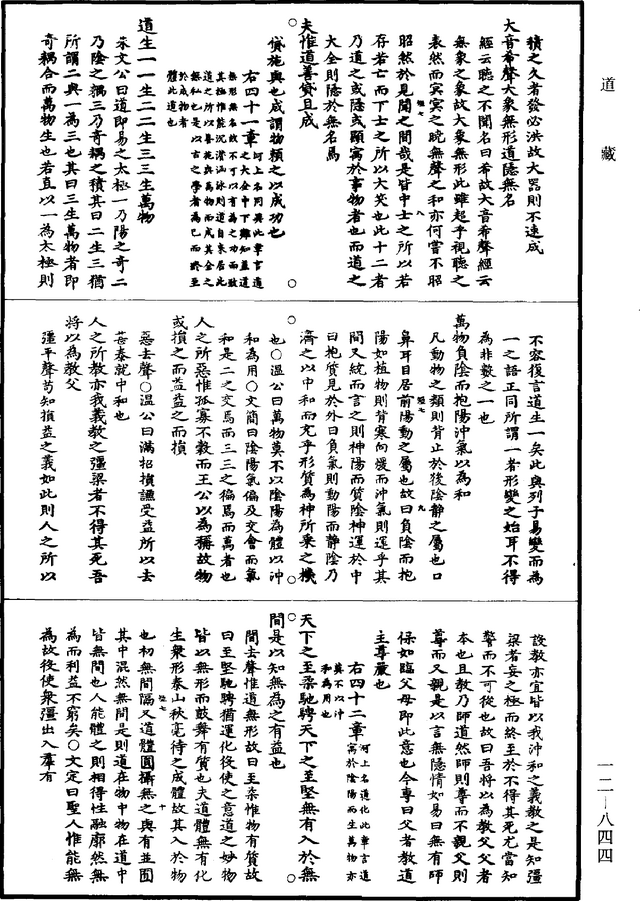 道藏
積之久者發必洪故大器則不速成
大音希聲大象無形道隱無名
經云聽之不聞名曰希故大音希聲經云
無象之象故大象無形此雖超乎視聽之
表然而冥冥之曉無聲之和亦何嘗不昭
昭然於見聞之間哉是皆中士之所以若
存若亡而下士之所以大笑也此十二者
乃道之或隱或顯寓於事物者也而道之
大全則隱於無名焉
夫惟道善貸且成
貸施與也成謂物賴之以成功也
右四十一章
河上名同異此章言道
之大全中下難知蓋道
無形無名故不可以有為之功而致
其極惟能沉潛涵泳則道自來居此
道之所以善施與萬物而成其全之
無私也是以言之學者為己而終至
於成物者
體此道也
道生一一生二二生三三生萬物
朱文公曰道即易之太極一乃陽之奇二
乃陰之耦三乃奇耦之積其曰二生三猶
所謂二與一為三也其曰三生萬物者即
奇耦合而萬物生也若直以一為太極則
不容復言道生一矣此與列子易變而為
一之語正同所謂一者形變之始耳不得
為非數之一也
萬物負陰而抱陽沖氣以為和
凡動物之類則背止於後陰靜之屬也口
鼻耳目居前陽動之屬也故曰負陰而抱
陽如植物則背寒向煖而沖氣則運乎其
間又統而言之則神陽而質陰神運於中
曰抱質見於外曰負氣則動陽而靜陰乃
濟之以中和而充乎形質為神所乘之機
也○溫公曰萬物莫不以陰陽為體以沖
和為用○文簡曰陰陽氣偏及交會而氣
和是二之交焉而三三之徧焉而萬者也
人之所惡惟孤寡不穀而王公以為稱故物
或損之而益益之而損
惡去聲○溫公曰滿招損謙受益所以去
甚泰就中和也
人之所教亦我義教之彊梁者不得其死吾
將以為教父
彊平聲苟知損益之義如此則人之所以
設教亦宜皆以我沖和之義教之是知彊
梁者妄之極而終至於不得其死尤當知
警而不可從也故曰吾將以為教父父者
本也且教乃師道然師則尊而不親父則
尊而又親是以言無隱情如易曰無有師
保如臨父母即此意也今專曰父者教道
主尊嚴也
右四十二章
河上名道化此章言道
寓於陰陽而生萬物亦
莫不以沖
和為用也
天下之至柔馳騁天下之至堅無有入於無
間是以知無為之有益也
間去聲惟道無形故曰至柔惟物有質故
曰至堅馳騁猶運化役使之意道之妙物
皆以無形而鼓舞有質也夫道體無有化
生衆形泰山秋毫待之成體故其入於物
也初無間隔又道體圓攝無之與有並囿
其中混然無間是則道在物中物在道中
皆無間也人能體之則相得性融廓然無
為而利益不窮矣○文定曰聖人惟能無
為故役使衆彊出入群有
一二—八四四